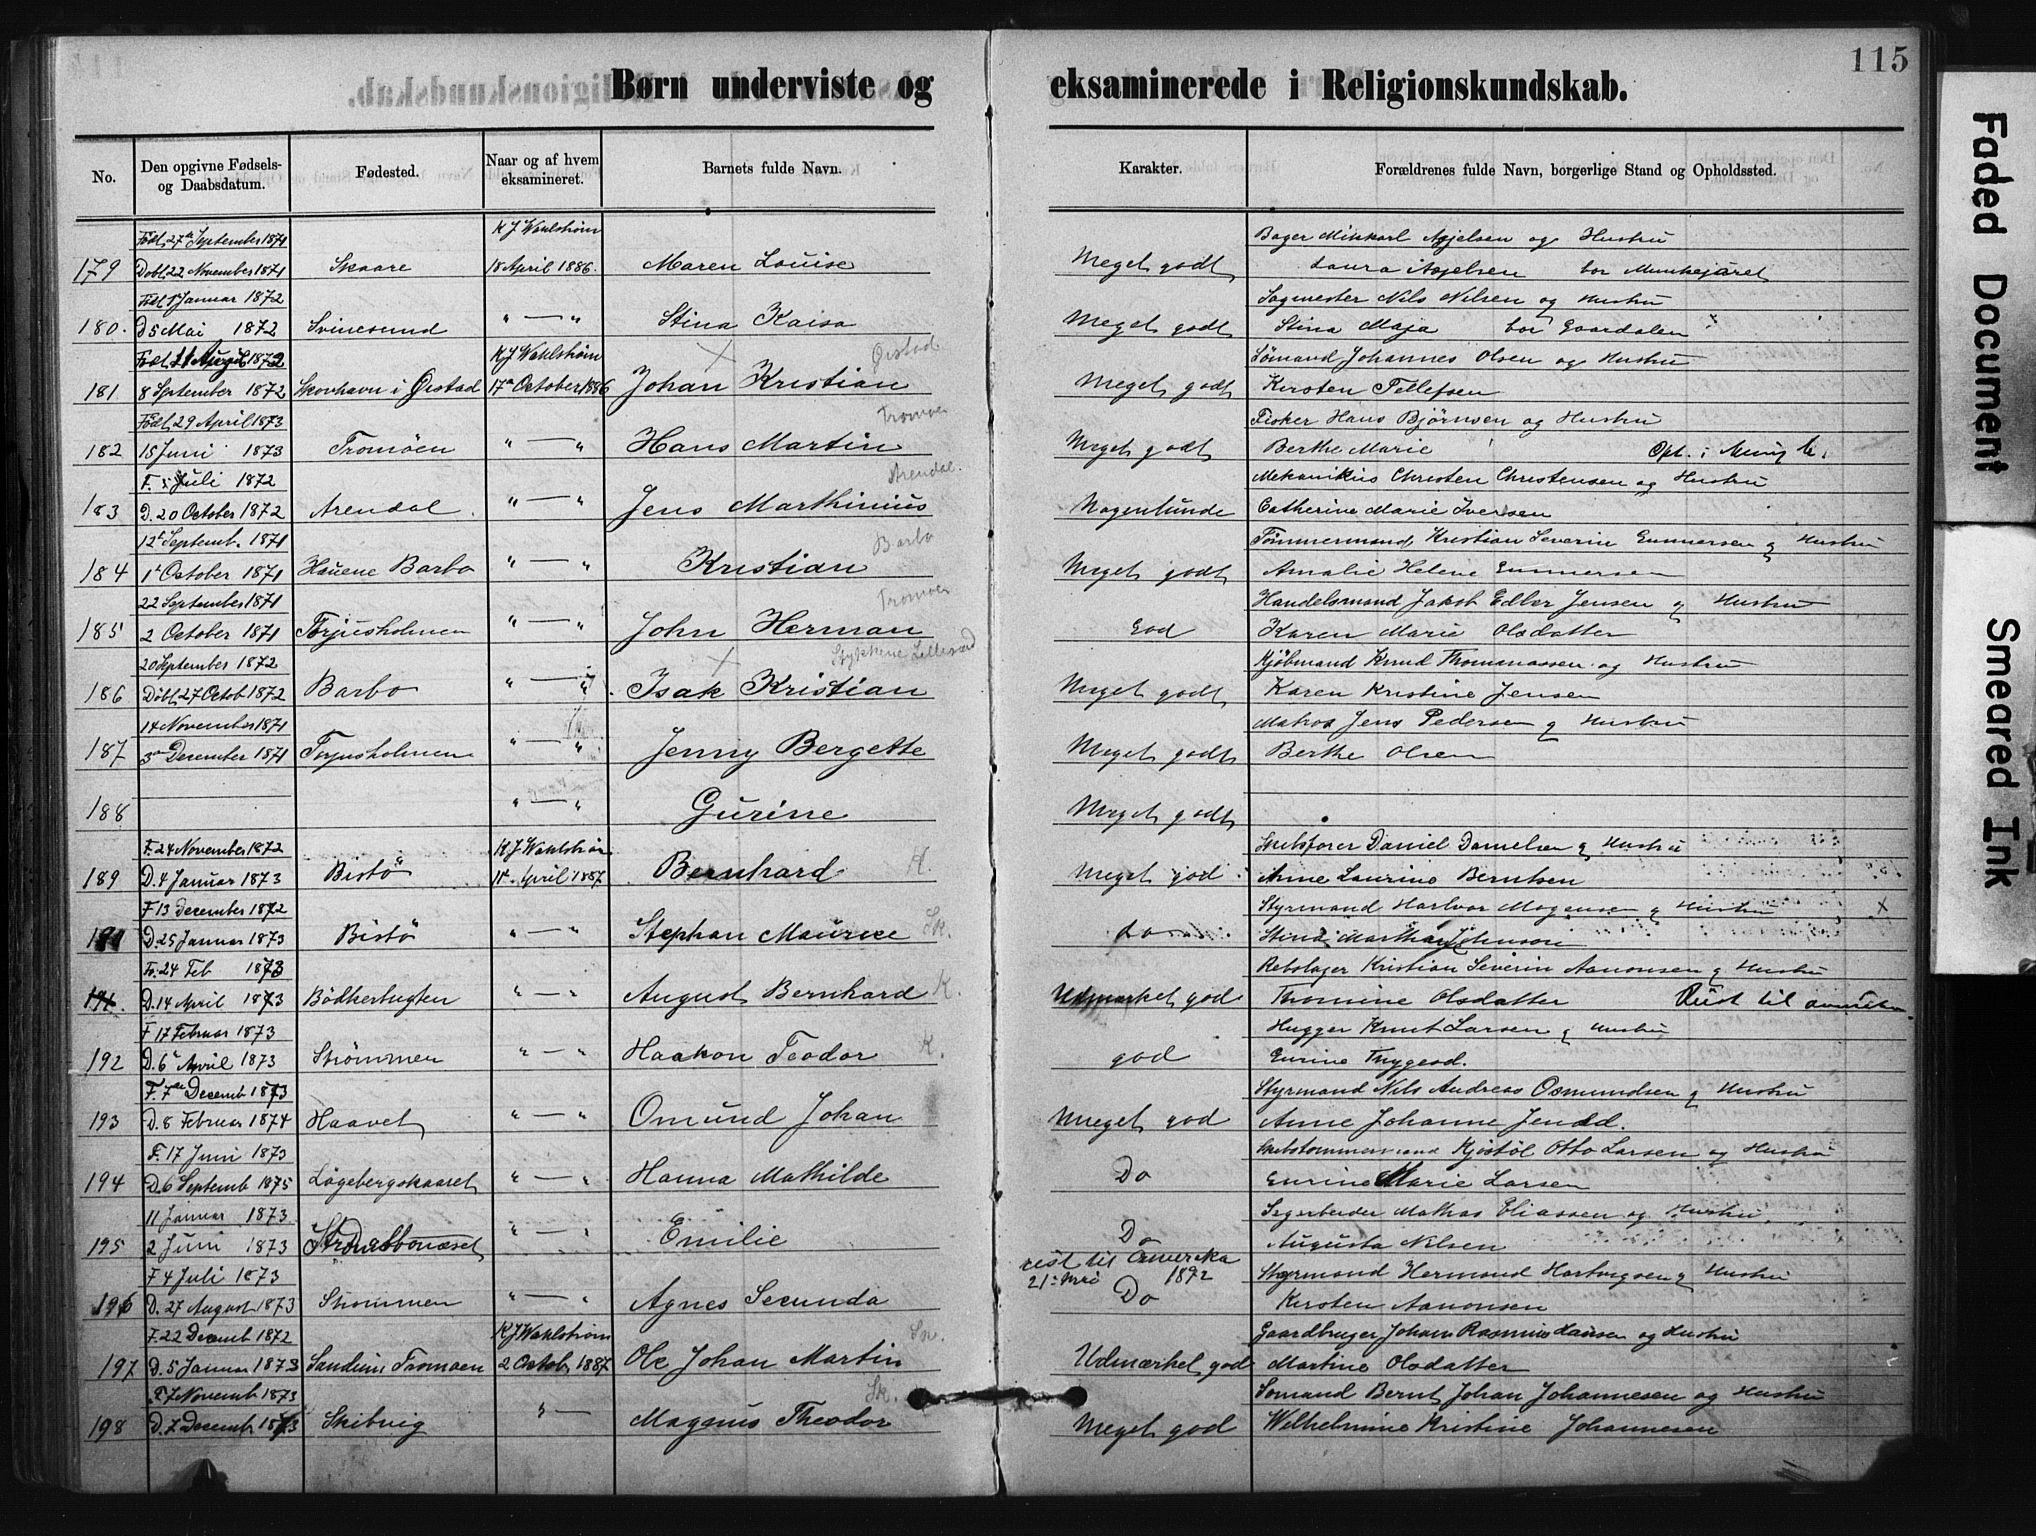 115
Børn underviste og eksaminerede i Religionskundskab.
No. Den opgivne Fødsels- og Daabsdatum. Fødested. Naar og af hvem eksamineret. Barnets fulde Navn. Karakter. Forældrenes fulde Navn, borgerlige Stand og Opholdssted.
Født 27de September 1871 K J Wahlstrøm Bager Mikkarl Axjelsen og Hustru
179 Døbt 22 November 1871 Skaare 18 April 1886. Maren Louise Meget godt Laura Axjelsen bor Munkejøret
Født 1 Januar 1872 Sagmester Nils Nilsen og Hustru
180. D 5 Mai 1872 Svinesund " — " Stina Kaisa Meget godt Stina Maja bor Gaardalen
Født 11 1872 KJ Wahlstrøm Ørstad Sømand Johannes Olsen og Hustru
181 8 September 1872 Skovhavn i Ørstad 17de October 1886 Johan Kristian Meget godt Kirsten Tellefsen
Født 29 April 1873 Tromøen Fisker Hans Bjørnsen og Hustru
182 15 Juni 1873 Tromøen " — " Hans Martin Meget godt Berthe Marie Opt. i Menig h.
F. Juli 1872 Arendal. Mekanikus Christen Christensen og Hustru
183 D. 20 October 1872 Arendal " — " Jens Marthinius Nogenlunde Catherine Marie Iversen
12t Septemb. 1871 Barbo Tømmermand Kristian Severin Gunnersen og Hustru
184 1t October 1871 Hauene Barbo " — " Kristian Meget godt Amalie Helene Gunnersen
22 September 1871 Tromøen Handelsmand Jakob Edler Jensen og Hustru
185 2 October 1871 Torjusholmen " — " John Herman God Karen Marie Olsdatter
20 September 1872 Stykkene Lillesand Kjøbmand Knud Thomanassen og Hustru
186 Døbt 27 Octob 1872 Barbo " — " Isak Kristian Meget godt Karen Kristine Jensen
14 November 1871 Matros Jens Pedersen og Hustru
187 3die December 1871 Torjusholmen " — " Jenny Bergette Meget godt Berthe Olsen
188 " — " Gurine Meget godt
F. 24 November 1872 K J Wahlstrøm Skibsfører Daniel Danielsen og Hustru
189 D. 4 Januar 1873 Bistø 11t April 1887 Bernhard H. Meget god Anne Laurine Berntsen
F 13 December 1872 Styrmand Harlvor Mogensen og Hustru X
191 D. 25 Januar 1873 Bistø " — " Stephan Maurice Sk. do Stina Martha Johnson
Fø. 24 Feb 1873 Rebslager Kristian Severin Aanonsen og Hustru
191. D. 14 April 1873 Bödkerbugten " — " August Bernhard K. Udmærket god Thomine Olsdatter Reist til
F 17 Februar 1873 Hugger Knut Larsen og Hustru
192 D. 6t April 1873 Strømmen " — " Haakon Teodor K. god Gurine Thygesd.
F. 7de Decemb 1873 Styrmand Nils Andreas Osmundsen og Hustru
193 D. 8 Februar 1874 Haavet " — " Omund Johan Meget god Anne Johanne Jensd.
F. 17 Juni 1873 Skibstømmermand Kjøstøl Otto Larsen og Hustru
194 D. 6 Septemb 1875 Løgebergskaaret " — " Hanna Mathilde Do Gurine Marie Larsen
11 Januar 1873 Mathias Eliassen og Hustru
195 2 Juni 1873 " — " Emilie Do Augusta Nilsen
F 4 Juli 1873 reist til Amerika 21 Mai 1892 Styrmand Hermand Hartvigsen og Hustru
196 D. 27 August 1873 Strømmen " — " Agnes Secunda Do Kirsten Aanonsen
F. 22 Decemb 1872 K J Wahlstrøm Sk. Gaardbruger Johan Rasmus Hansen og Hustru
197 D. 5 Januar 1873 Sandum Tromøen 2 Octob 1887 Ole Johan Martin Udmærket god Martine Olsdatter
F 7 Novemb 1873 Sk. Sømand Bernt Johan Johannesen og Hustru
198 D. 7 Decemb 1873 Skibvig " — Magnus Theodor Meget god Wilhelmine Kristine Johannesen
Faded Document
Smeared Ink